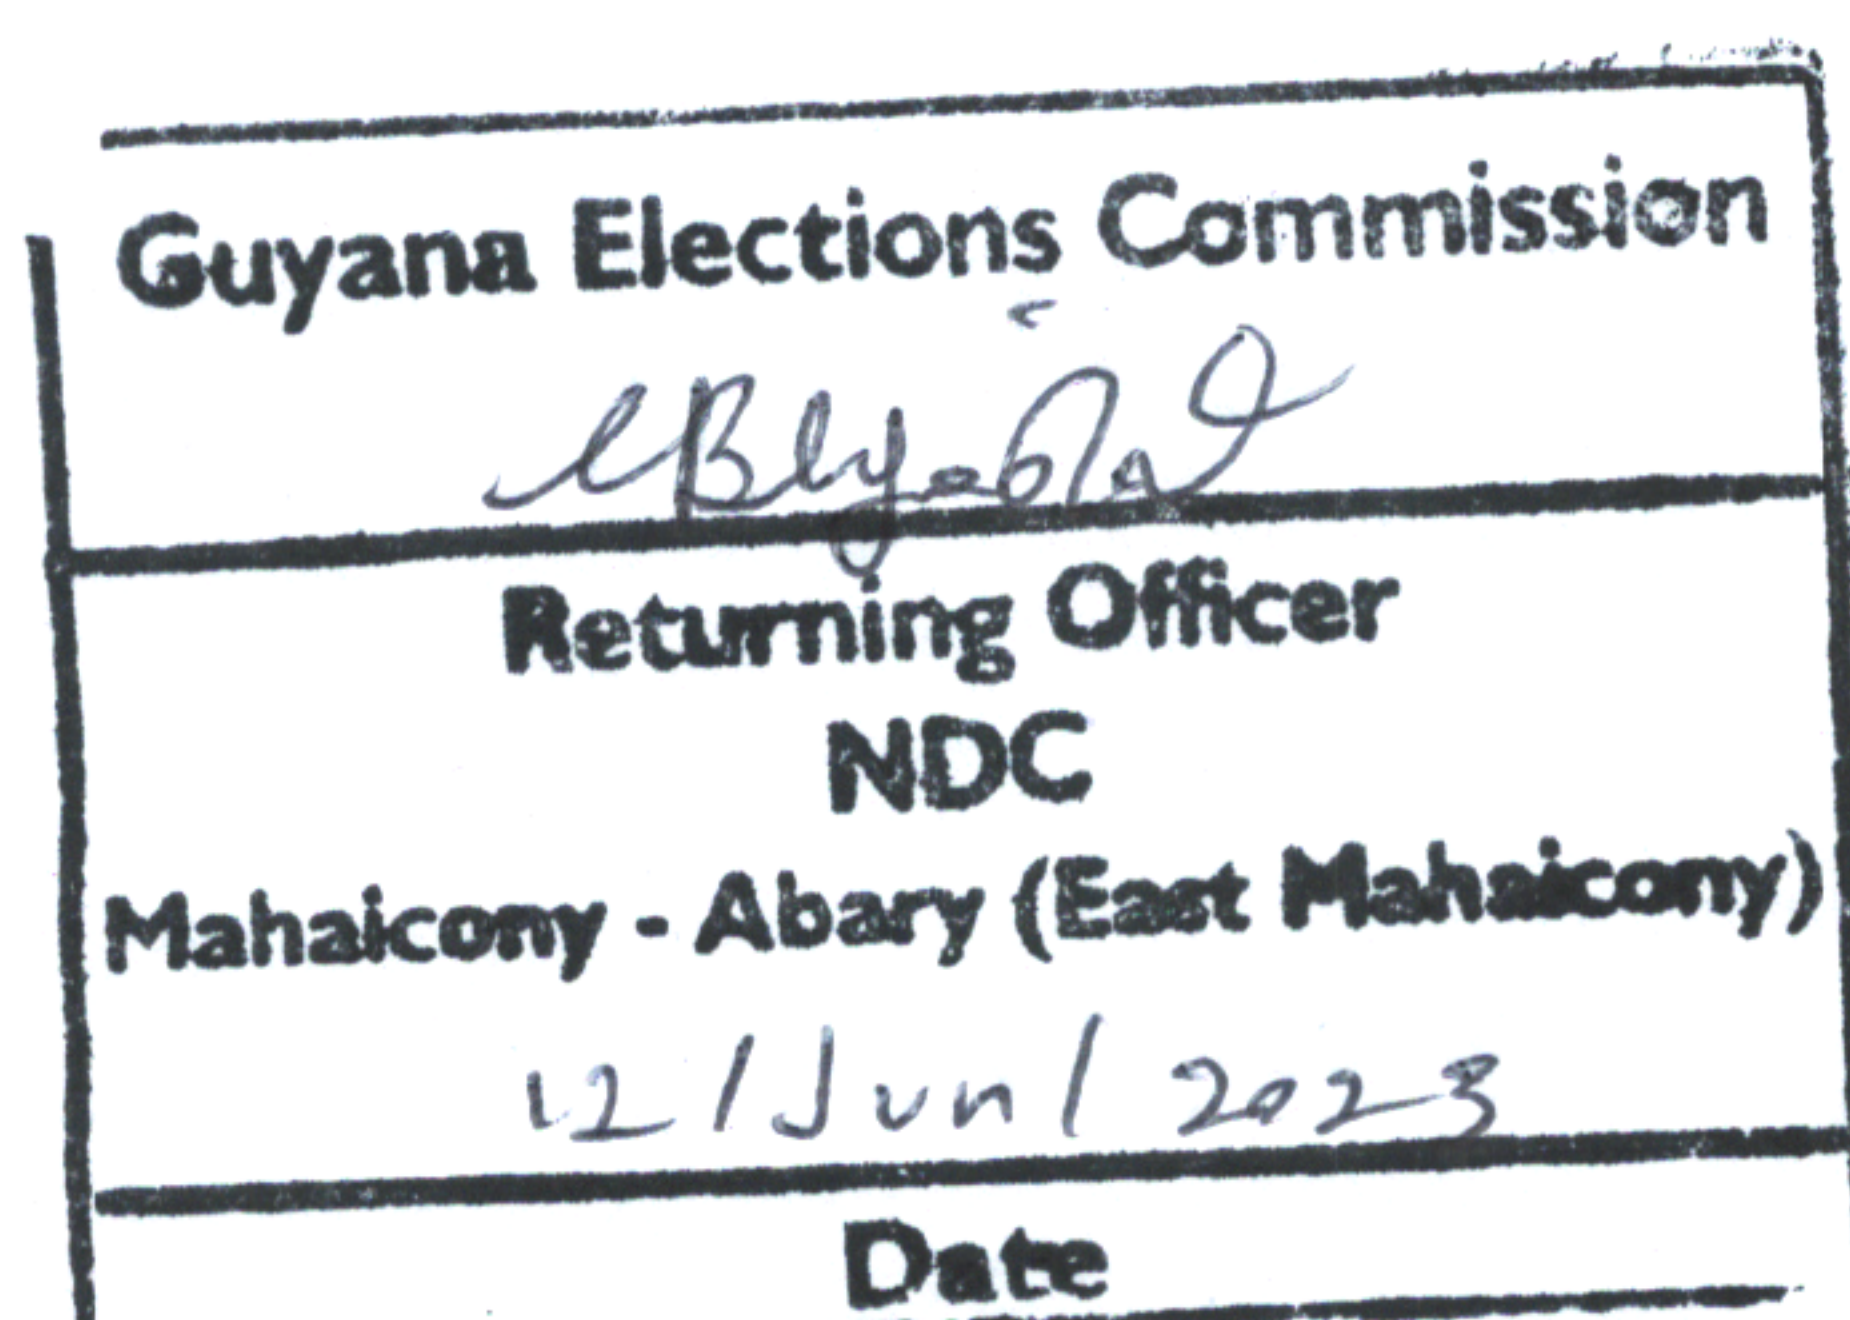 Guyana Elections Commission
Returning Officer
NDC
Mahaicony - Abary (East Mahaicony)
12/Jun/2023
Date